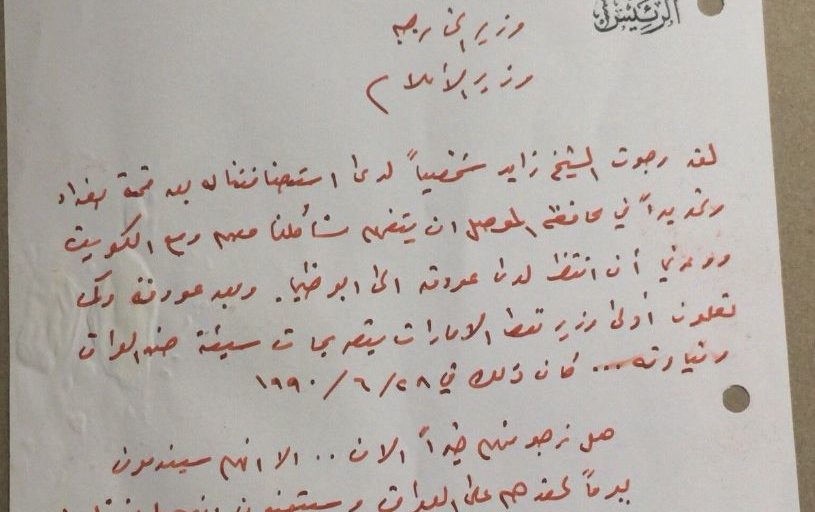 الرئيس
وزير الخارجية
وزير الأعلام
لقد رجوت الشيخ زايد شخصياً لدى استضافتنا له بعد قمة بغداد
وتحديداً في محافظة الموصل ان يتفهم مشاكلنا معهم ومع الكويت
ووعدني أن انتظر لدى عودته الى ابوظبي. وبعد عودته وكما
تعلمون أدلى وزير نفط الامارات بتصريحات سيئة ضد العراق
وقيادته... كان ذلك في ٢٨/٦/١٩٩٠
هل نرجو منهم خيراً الان .. الا انهم سيندمون
يوماً لحقدهم على العراق و